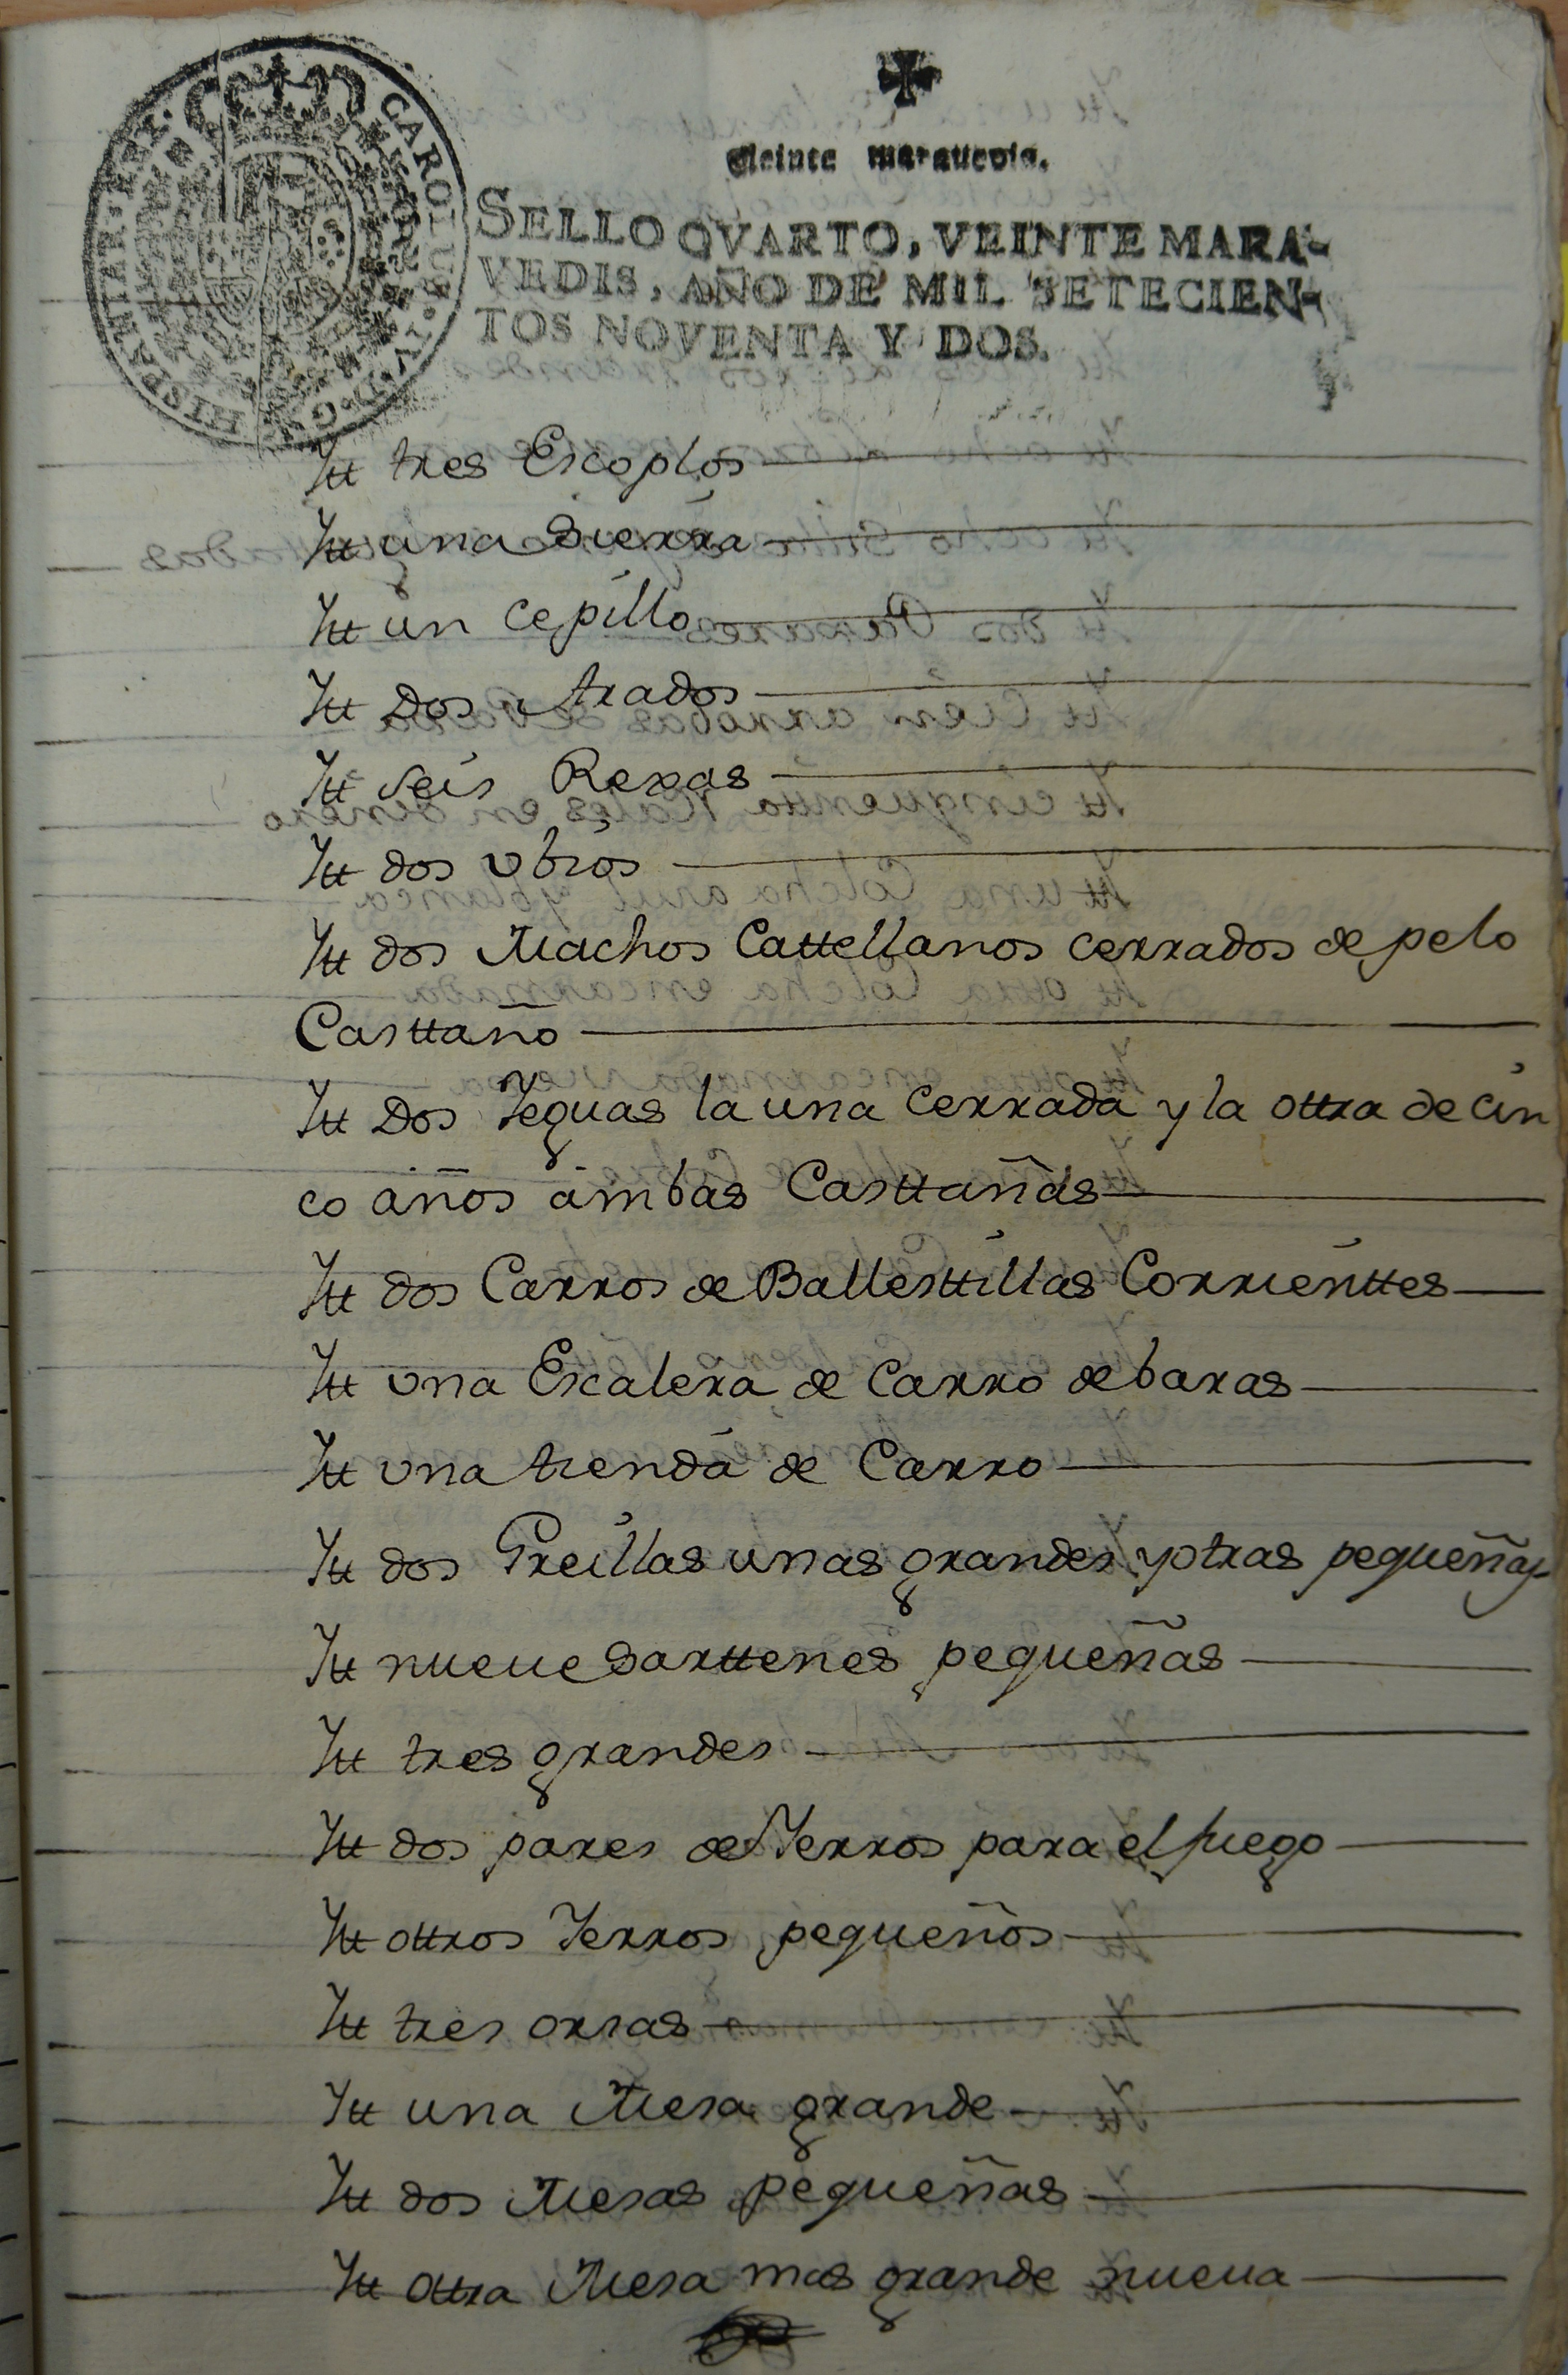 Veinte marauedis.
SELLO QVARTO, VEINTE MARA-
VEDIS, AÑO DE MIL SETECIEN-
TOS NOVENTA Y DOS.
CAROLUS IV D G HISPANIAR REX
Itt tres Escoplos
Itt una Sierra
Itt un cepillo
Itt Dos Arados
Itt seis Rexas
Itt dos vbios
Itt dos Machos Cattellanos cerrados de pelo
Casttaño
Itt Dos Yeguas la una Cerrada y la ottra de cin
co años ambas Casttañas
Itt dos Carros de Ballesttillas Corrienttes
Itt vna Escalera de Carro de baras
Itt vna tienda de Carro
Itt dos Greillas unas grandes y otras pequeñas
Itt nueue Sarttenes pequeñas
Itt tres grandes
Itt dos pares de Yerros para el fuego
Itt ottros Yerros pequeños
Itt tres orsas
Itt una Mesa grande
Itt dos Mesas pequeñas
Itt ottra Mesa mas grande nueua